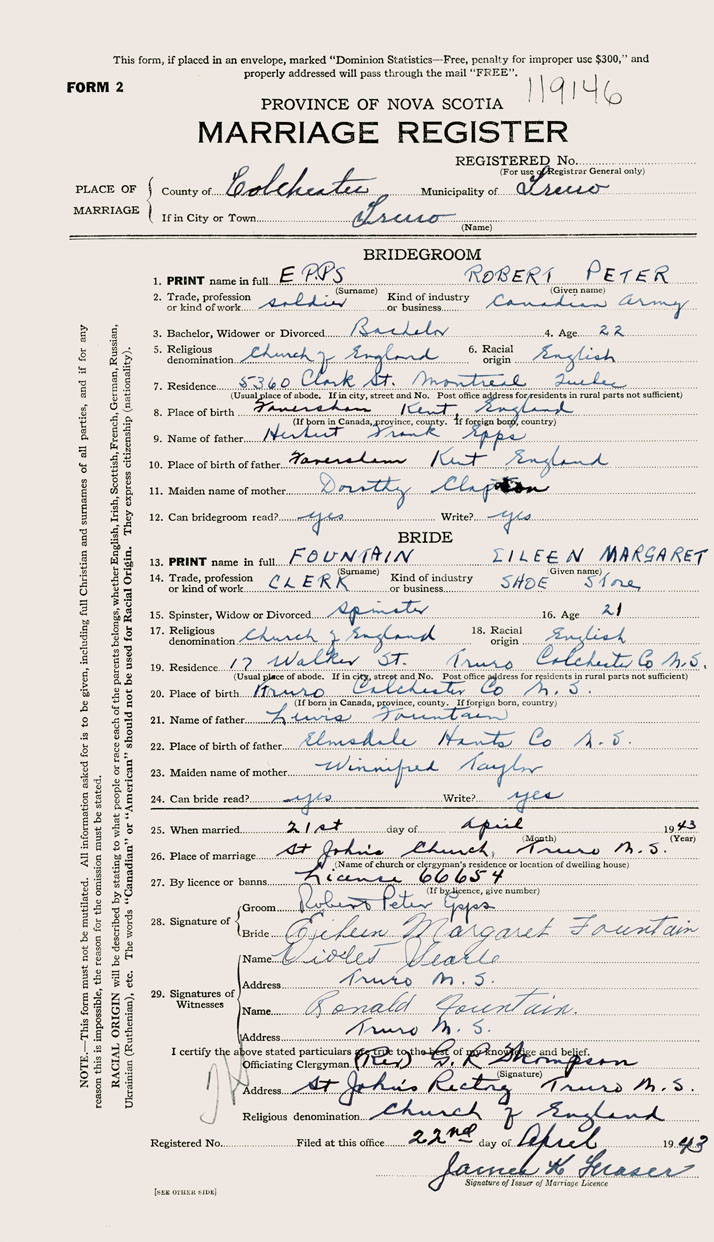 This form, if placed in an envelope, marked "Dominion Statistics—Free, penalty for improper use $300," and
properly addressed will pass through the mail "FREE".
FORM 2
119146
PROVINCE OF NOVA SCOTIA
MARRIAGE REGISTER
REGISTERED No.
(For use of Registrar General only)
PLACE OF MARRIAGE
County of Colchester Municipality of Truro
If in City or Town Truro
(Name)
BRIDEGROOM
1. PRINT name in full EPPS ROBERT PETER
(Surname) (Given name)
2. Trade, profession or kind of work soldier Kind of industry or business Canadian Army
3. Bachelor, Widower or Divorced Bachelor 4. Age 22
5. Religious denomination Church of England 6. Racial origin English
7. Residence 5360 Clark St. Montreal Quebec
(Usual place of abode. If in city, street and No. Post office address for residents in rural parts not sufficient)
8. Place of birth Faversham Kent, England
(If born in Canada, province, county. If foreign born, country)
9. Name of father Herbert Frank Epps
10. Place of birth of father Faversham Kent England
11. Maiden name of mother Dorothy Clapton
12. Can bridegroom read? yes Write? yes
BRIDE
13. PRINT name in full FOUNTAIN EILEEN MARGARET
(Surname) (Given name)
14. Trade, profession or kind of work CLERK Kind of industry or business SHOE Store
15. Spinster, Widow or Divorced Spinster 16. Age 21
17. Religious denomination Church of England 18. Racial origin English
19. Residence 17 Walker St. Truro Colchester Co N.S.
(Usual place of abode. If in city, street and No. Post office address for residents in rural parts not sufficient)
20. Place of birth Truro Colchester Co N.S.
(If born in Canada, province, county. If foreign born, country)
21. Name of father Lewis Fountain
22. Place of birth of father Elmsdale Hants Co N.S.
23. Maiden name of mother Winnifred Taylor
24. Can bride read? yes Write? yes
25. When married 21st day of April 1943
(Month) (Year)
26. Place of marriage St John's Church, Truro N.S.
(Name of church or clergyman's residence or location of dwelling house)
27. By licence or banns License 66654
(If by licence, give number)
28. Signature of
Groom Robert Peter Epps
Bride Eileen Margaret Fountain
29. Signatures of Witnesses
Name Violet Searle
Address Truro N.S.
Name Ronald Fountain.
Address Truro N.S.
I certify the above stated particulars are true to the best of my knowledge and belief.
Officiating Clergyman (Rev) G. R. Thompson
(Signature)
Address St John's Rectory Truro N.S.
Religious denomination Church of England
Registered No. Filed at this office 22nd day of April 1943
James K Fraser
Signature of Issuer of Marriage Licence
[SEE OTHER SIDE]
NOTE.—This form must not be mutilated. All information asked for is to be given, including full Christian and surnames of all parties, and if for any
reason this is impossible, the reason for the omission must be stated.
RACIAL ORIGIN will be described by stating to what people or race each of the parents belongs, whether English, Irish, Scottish, French, German, Russian,
Ukrainian (Ruthenian), etc. The words "Canadian" or "American" should not be used for Racial Origin. They express citizenship (nationality).